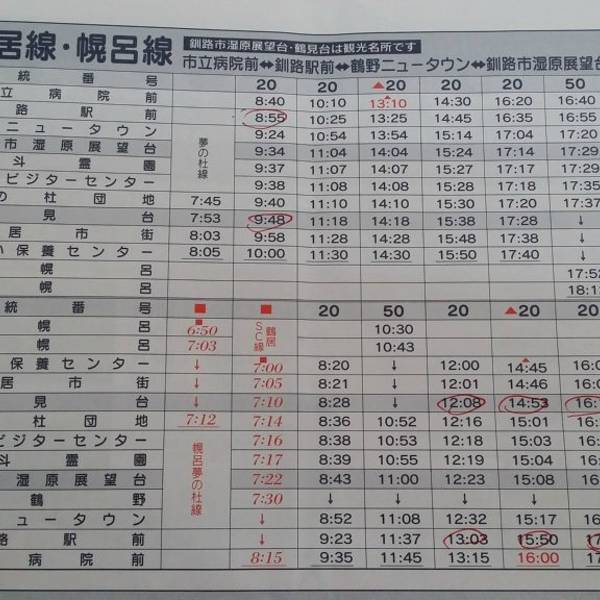 居線・幌呂線 釧路市湿原展望台・鶴見台は観光名所です
市立病院前⇔釧路駅前⇔鶴野ニュータウン⇔釧路市湿原展望台
統番号 20 20 ▲20 20 20 50
立病院前 8:40 10:10 13:10 14:30 16:20 16:40
路駅前 8:55 10:25 13:25 14:45 16:35 16:55
ニュータウン 9:24 10:54 13:54 15:14 17:04 17:20
市湿原展望台 夢の杜線 9:34 11:04 14:04 15:24 17:14 17:29
斗霊園 9:37 11:07 14:07 15:27 17:17
ビジターセンター 9:38 11:08 14:08 15:28 17:18 17:35
の杜団地 7:45 9:40 11:10 14:10 15:30 17:20 17:37
見台 7:53 9:48 11:18 14:18 15:38 17:28 ↓
居市街 8:03 9:58 11:28 14:28 15:48 17:38 ↓
い保養センター 8:05 10:00 11:30 14:30 15:50 17:40 ↓
幌呂 17:52
幌呂 18:1
統番号 ■ ■ 20 50 20 ▲20 20
幌呂 6:50 鶴居SC線 10:30
呂 7:03 10:43
保養センター ↓ 7:00 8:20 ↓ 12:00 14:45 16:0
居市街 ↓ 7:05 8:21 ↓ 12:01 14:46 16:0
見台 ↓ 7:10 8:28 ↓ 12:08 14:53 16:
杜団地 7:12 7:14 8:36 10:52 12:16 15:01 16:
ビジターセンター 幌呂夢の杜線 7:16 8:38 10:53 12:18 15:03 16:
斗霊園 7:17 8:39 10:55 12:19 15:04 16:
湿原展望台 7:22 8:43 11:00 12:23 15:08 16:
鶴野 7:30 ↓ ↓ ↓ ↓ ↓
ュータウン ↓ 8:52 11:08 12:32 15:17 16:
路駅前 ↓ 9:23 11:37 13:03 15:50 17
病院前 8:15 9:35 11:45 13:15 16:00 17